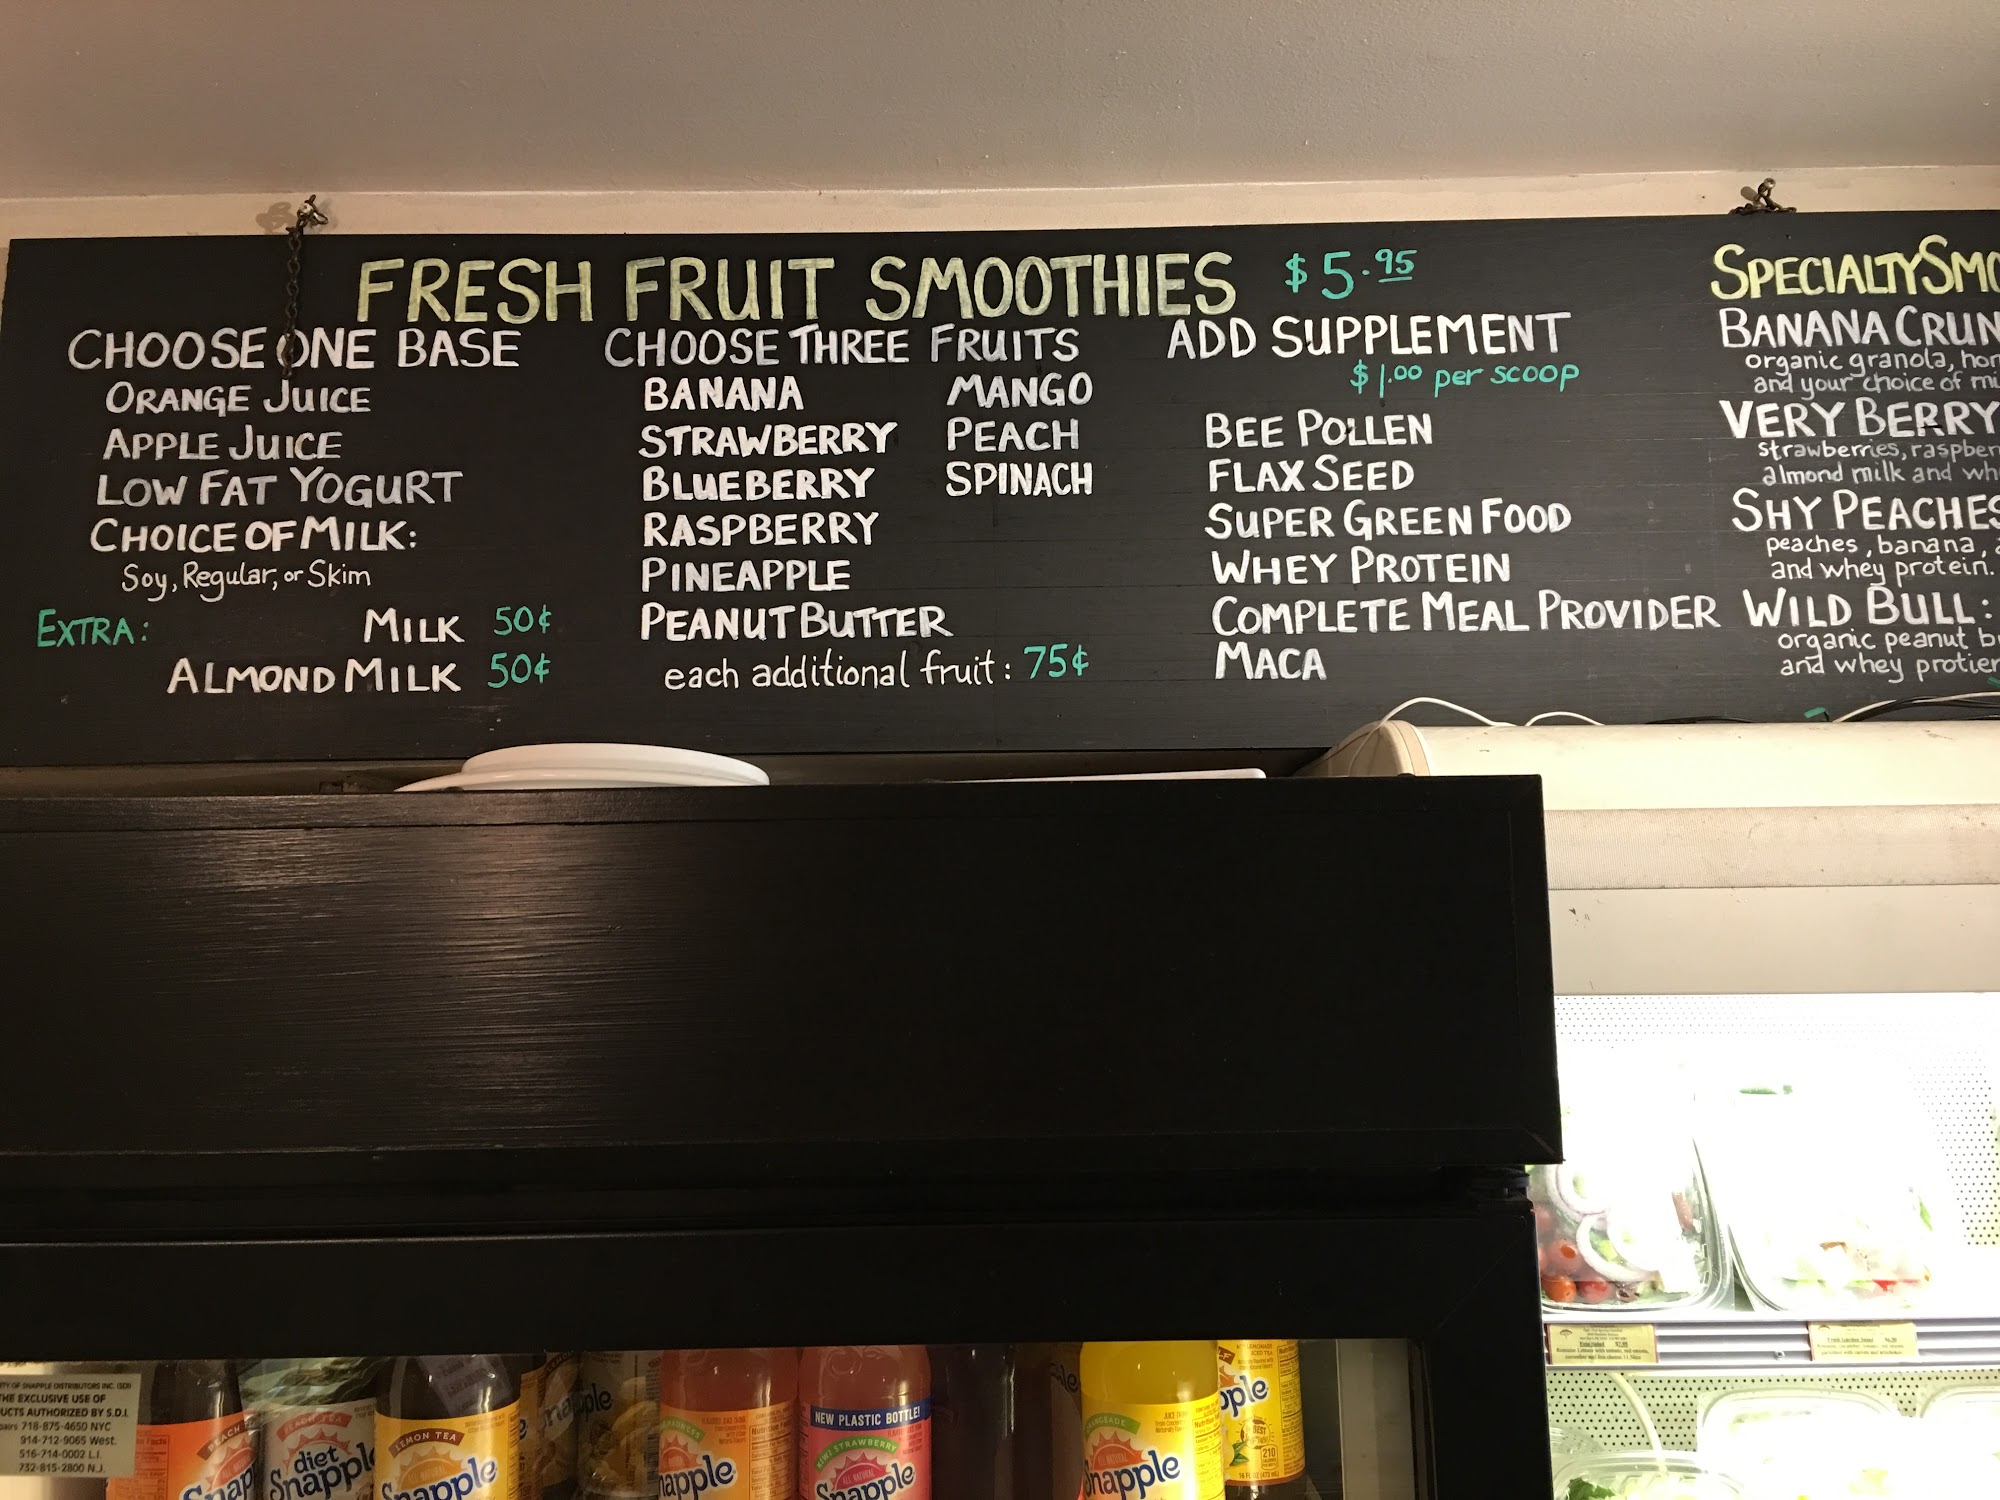 FRESH FRUIT SMOOTHIES $5.95
CHOOSE ONE BASE
ORANGE JUICE
APPLE JUICE
LOW FAT YOGURT
CHOICE OF MILK:
Soy, Regular, or Skim
EXTRA: MILK 50¢
ALMOND MILK 50¢
CHOOSE THREE FRUITS
BANANA MANGO
STRAWBERRY PEACH
BLUEBERRY SPINACH
RASPBERRY
PINEAPPLE
PEANUT BUTTER
each additional fruit: 75¢
ADD SUPPLEMENT
$1.00 per scoop
BEE POLLEN
FLAX SEED
SUPER GREEN FOOD
WHEY PROTEIN
COMPLETE MEAL PROVIDER
MACA
SPECIALTY SMO
BANANA CRUN
organic granola, hon
and your choice of mi
VERY BERRY
strawberries, raspber
almond milk and wh
SHY PEACHES
peaches, banana,
and whey protein.
WILD BULL:
organic peanut b
and whey protier
TY OF SNAPPLE DISTRIBUTORS INC. (SDI)
THE EXCLUSIVE USE OF
UCTS AUTHORIZED BY S.D.I.
pairs 718-875-4650 NYC
914-712-9065 West.
516-714-0002 L.I.
732-815-2800 N.J.
PEACH
Snap
PEACH TEA
diet
Snapple
LEMON TEA
Snapple
napple
NEW PLASTIC BOTTLE!
KIWI STRAWBERRY
ALL NATURAL
Snapple
ORANGEADE
Snapple
pple
210